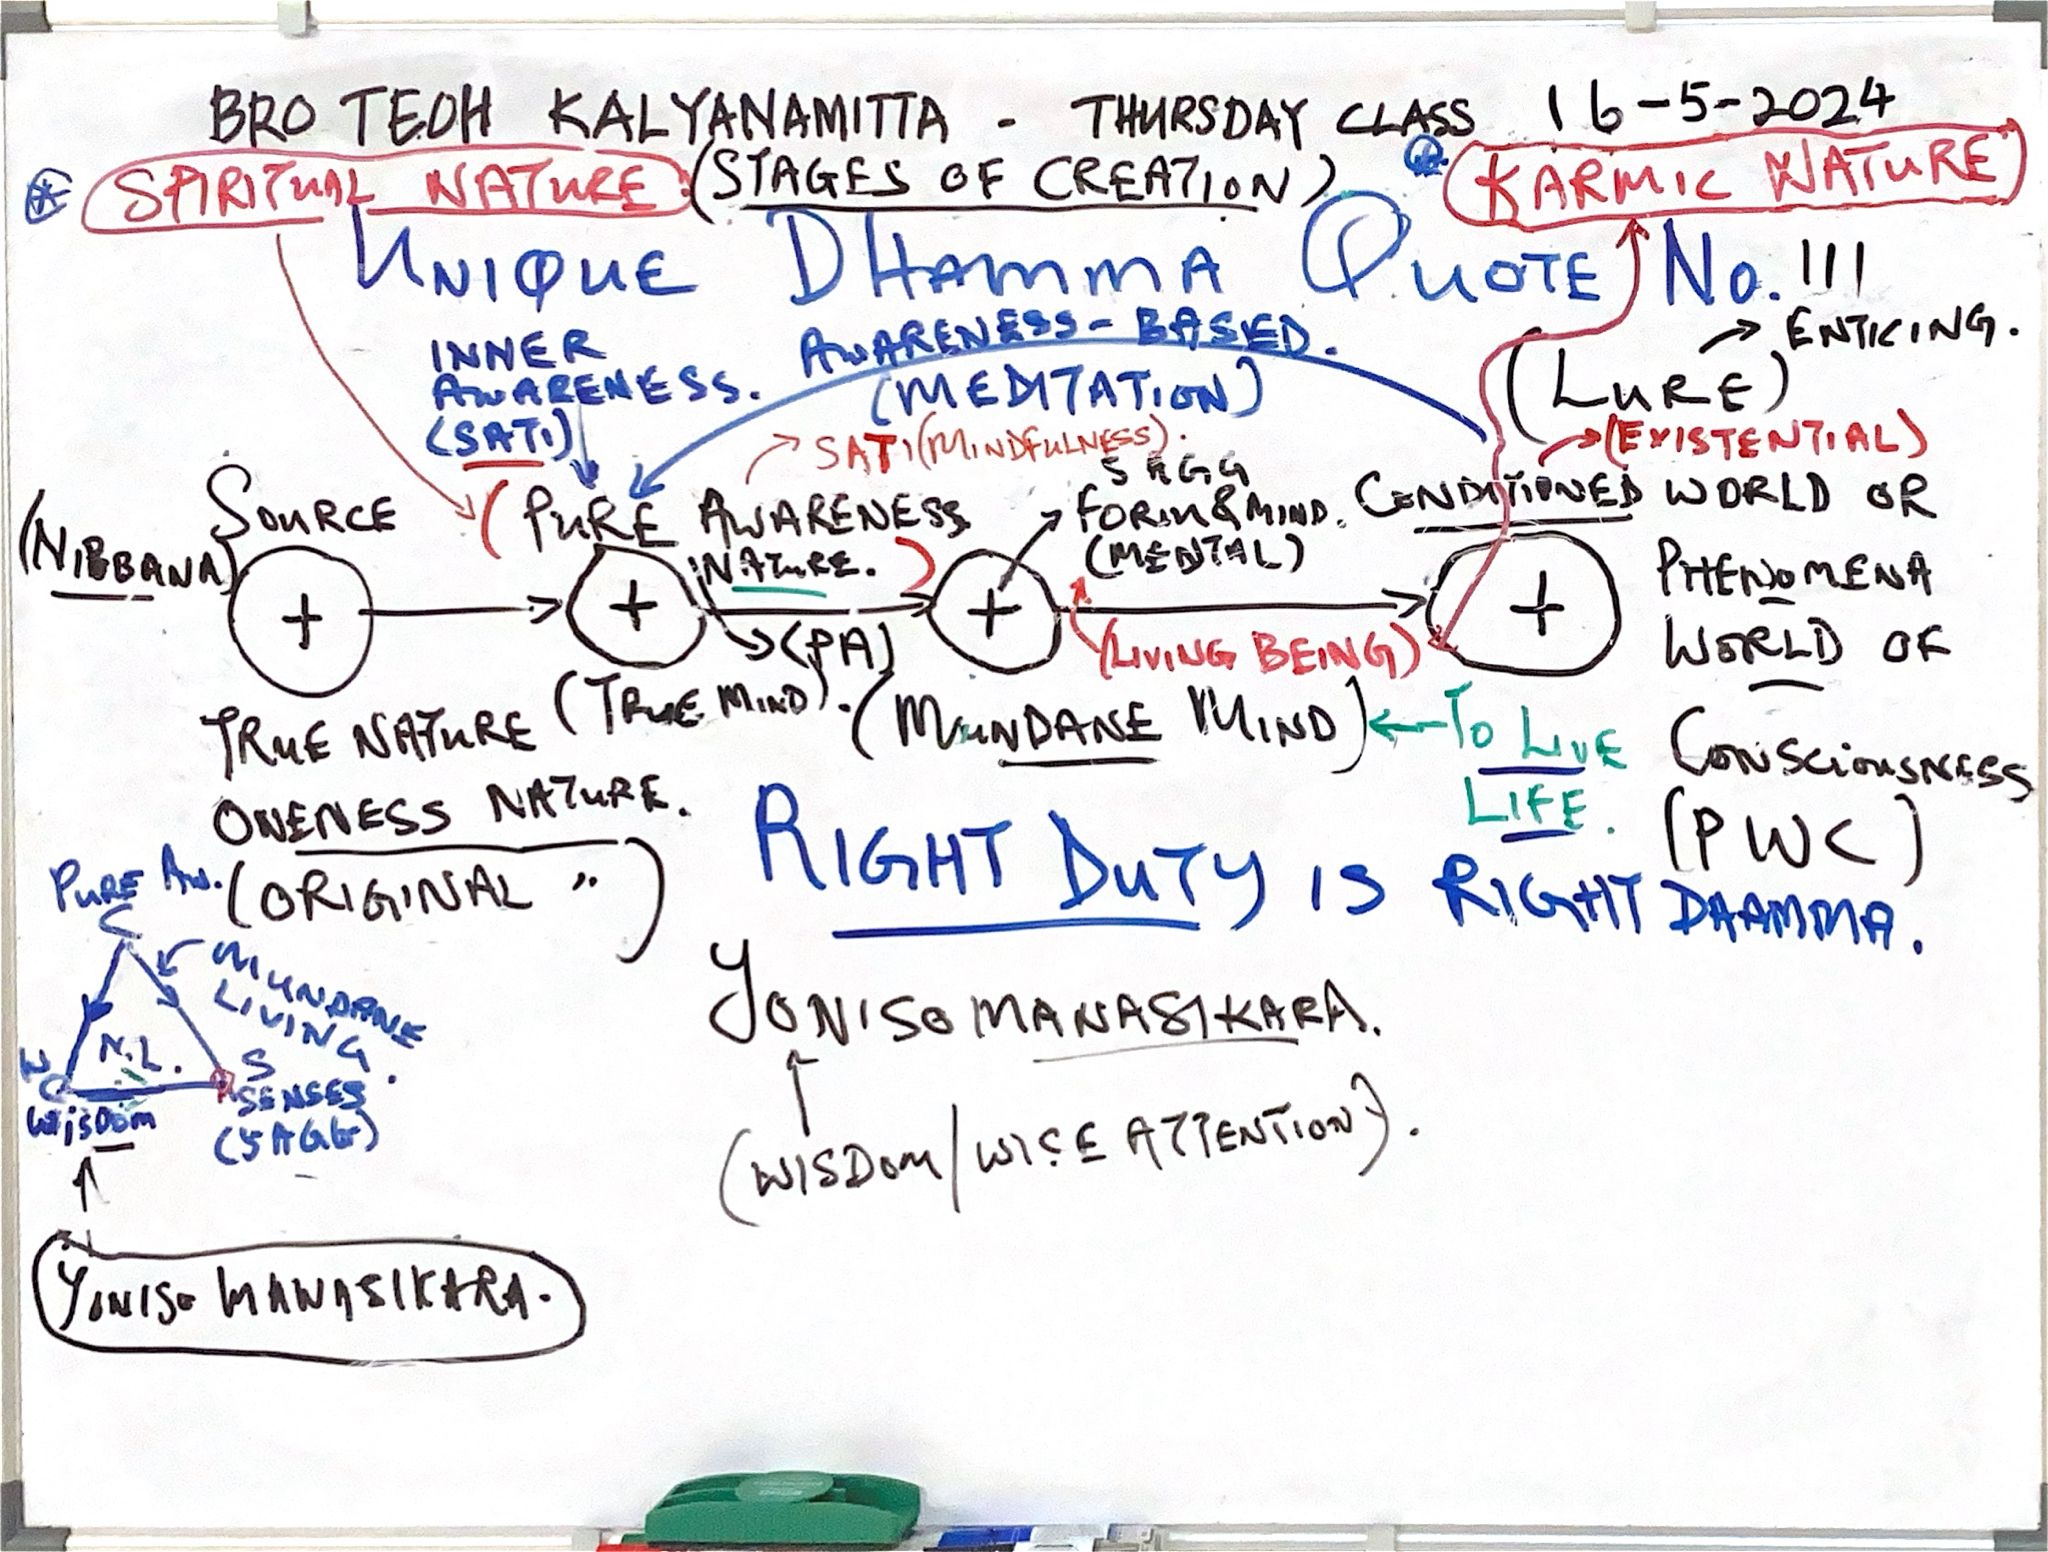 BRO TEOH KALYANAMITTA - THURSDAY CLASS 16-5-2024
SPIRITUAL NATURE (STAGES OF CREATION) KARMIC NATURE
UNIQUE DHAMMA QUOTE No. 111
INNER AWARENESS.
(SATI)
AWARENESS-BASED.
(MEDITATION)
(LURE) → ENTICING.
→ (EXISTENTIAL)
→ SATI (MINDFULNESS).
(NIBBANA) SOURCE
(PURE AWARENESS NATURE.)
5 AGG
FORM & MIND.
(MENTAL)
CONDITIONED WORLD OR
PHENOMENA
WORLD OF
CONSCIOUSNESS
(PWC)
+ + + +
→(PA)
(LIVING BEING)
TRUE NATURE (TRUE MIND). (MUNDANE MIND) ← TO LIVE
LIFE.
ONENESS NATURE.
(ORIGINAL ")
RIGHT DUTY IS RIGHT DAAMMA.
PURE AW.
C
MUNDANE
LIVING.
N.L.
W S
WISDOM
SENSES
(5 AGG)
YONISO MANASIKARA.
(WISDOM/WISE ATTENTION).
YONISO MANASIKARA.